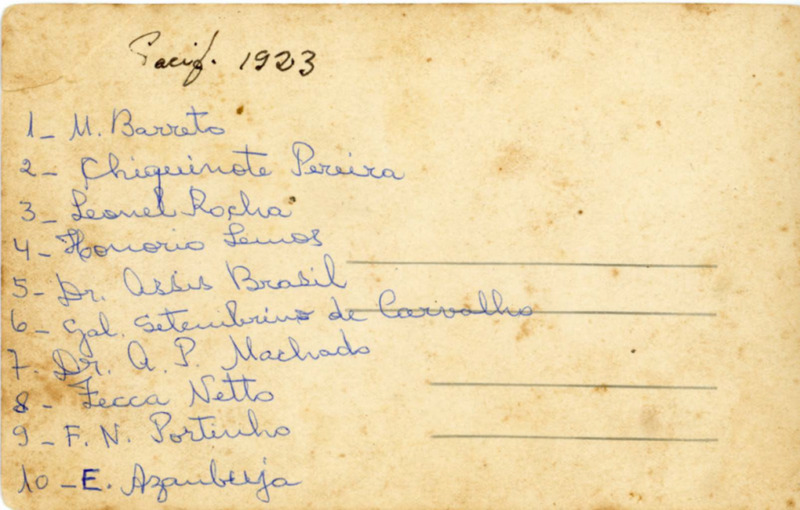 Pacif. 1923
1- M. Barreto
2- Chiquinote Pereira
3- Leonel Rocha
4- Honorio Lemos
5- Dr. Assis Brasil
6- Gal. Setembrino de Carvalho
7. Dr. A. P. Machado
8- Zecca Netto
9- F. N. Portinho
10- E. Azambuja